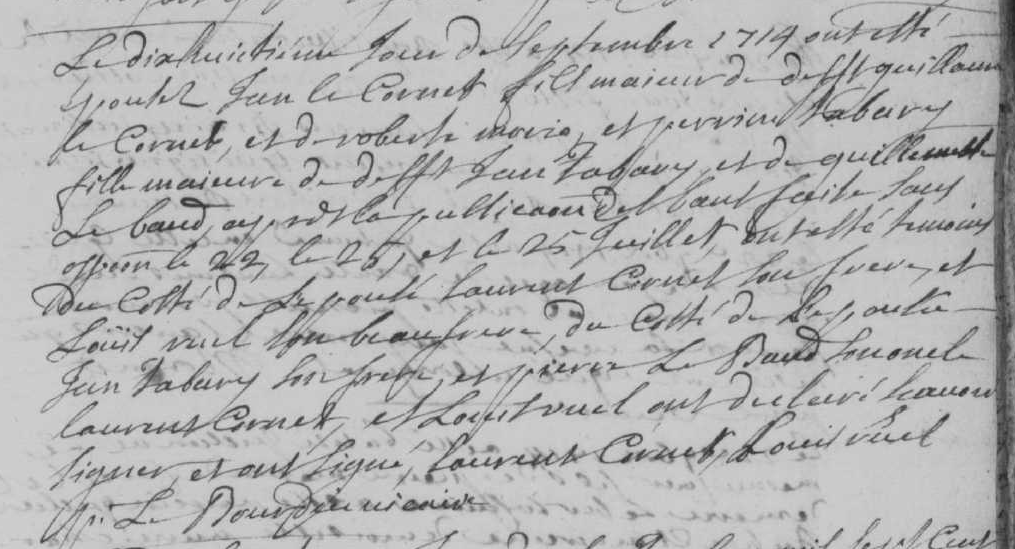 Le dixhuictième Jour de Septembre 1714 ont esté
épousez Jan le Cornet fils maieur de defft guillaume
le Cornet, et de roberte morio, et perrine tabary
fille maieure de defft Jan Tabary et de guillemette
Le baud, après la publicaon des bans faite sans
oppoon le 22, le 25, et le 25 Juillet ont esté temoins
du Costé de Lepousé Laurent Cornet son frere, et
Loüis ruel son beaufrere, du Costé de Lepousée
Jan Tabary son frere, et pierre Le Baud son oncle
laurent Cornet, et Louis ruel ont declairé scavoir
signer, et ont signé, laurent Cornet, Louis ruel
p. Le Bourdiec vicaire